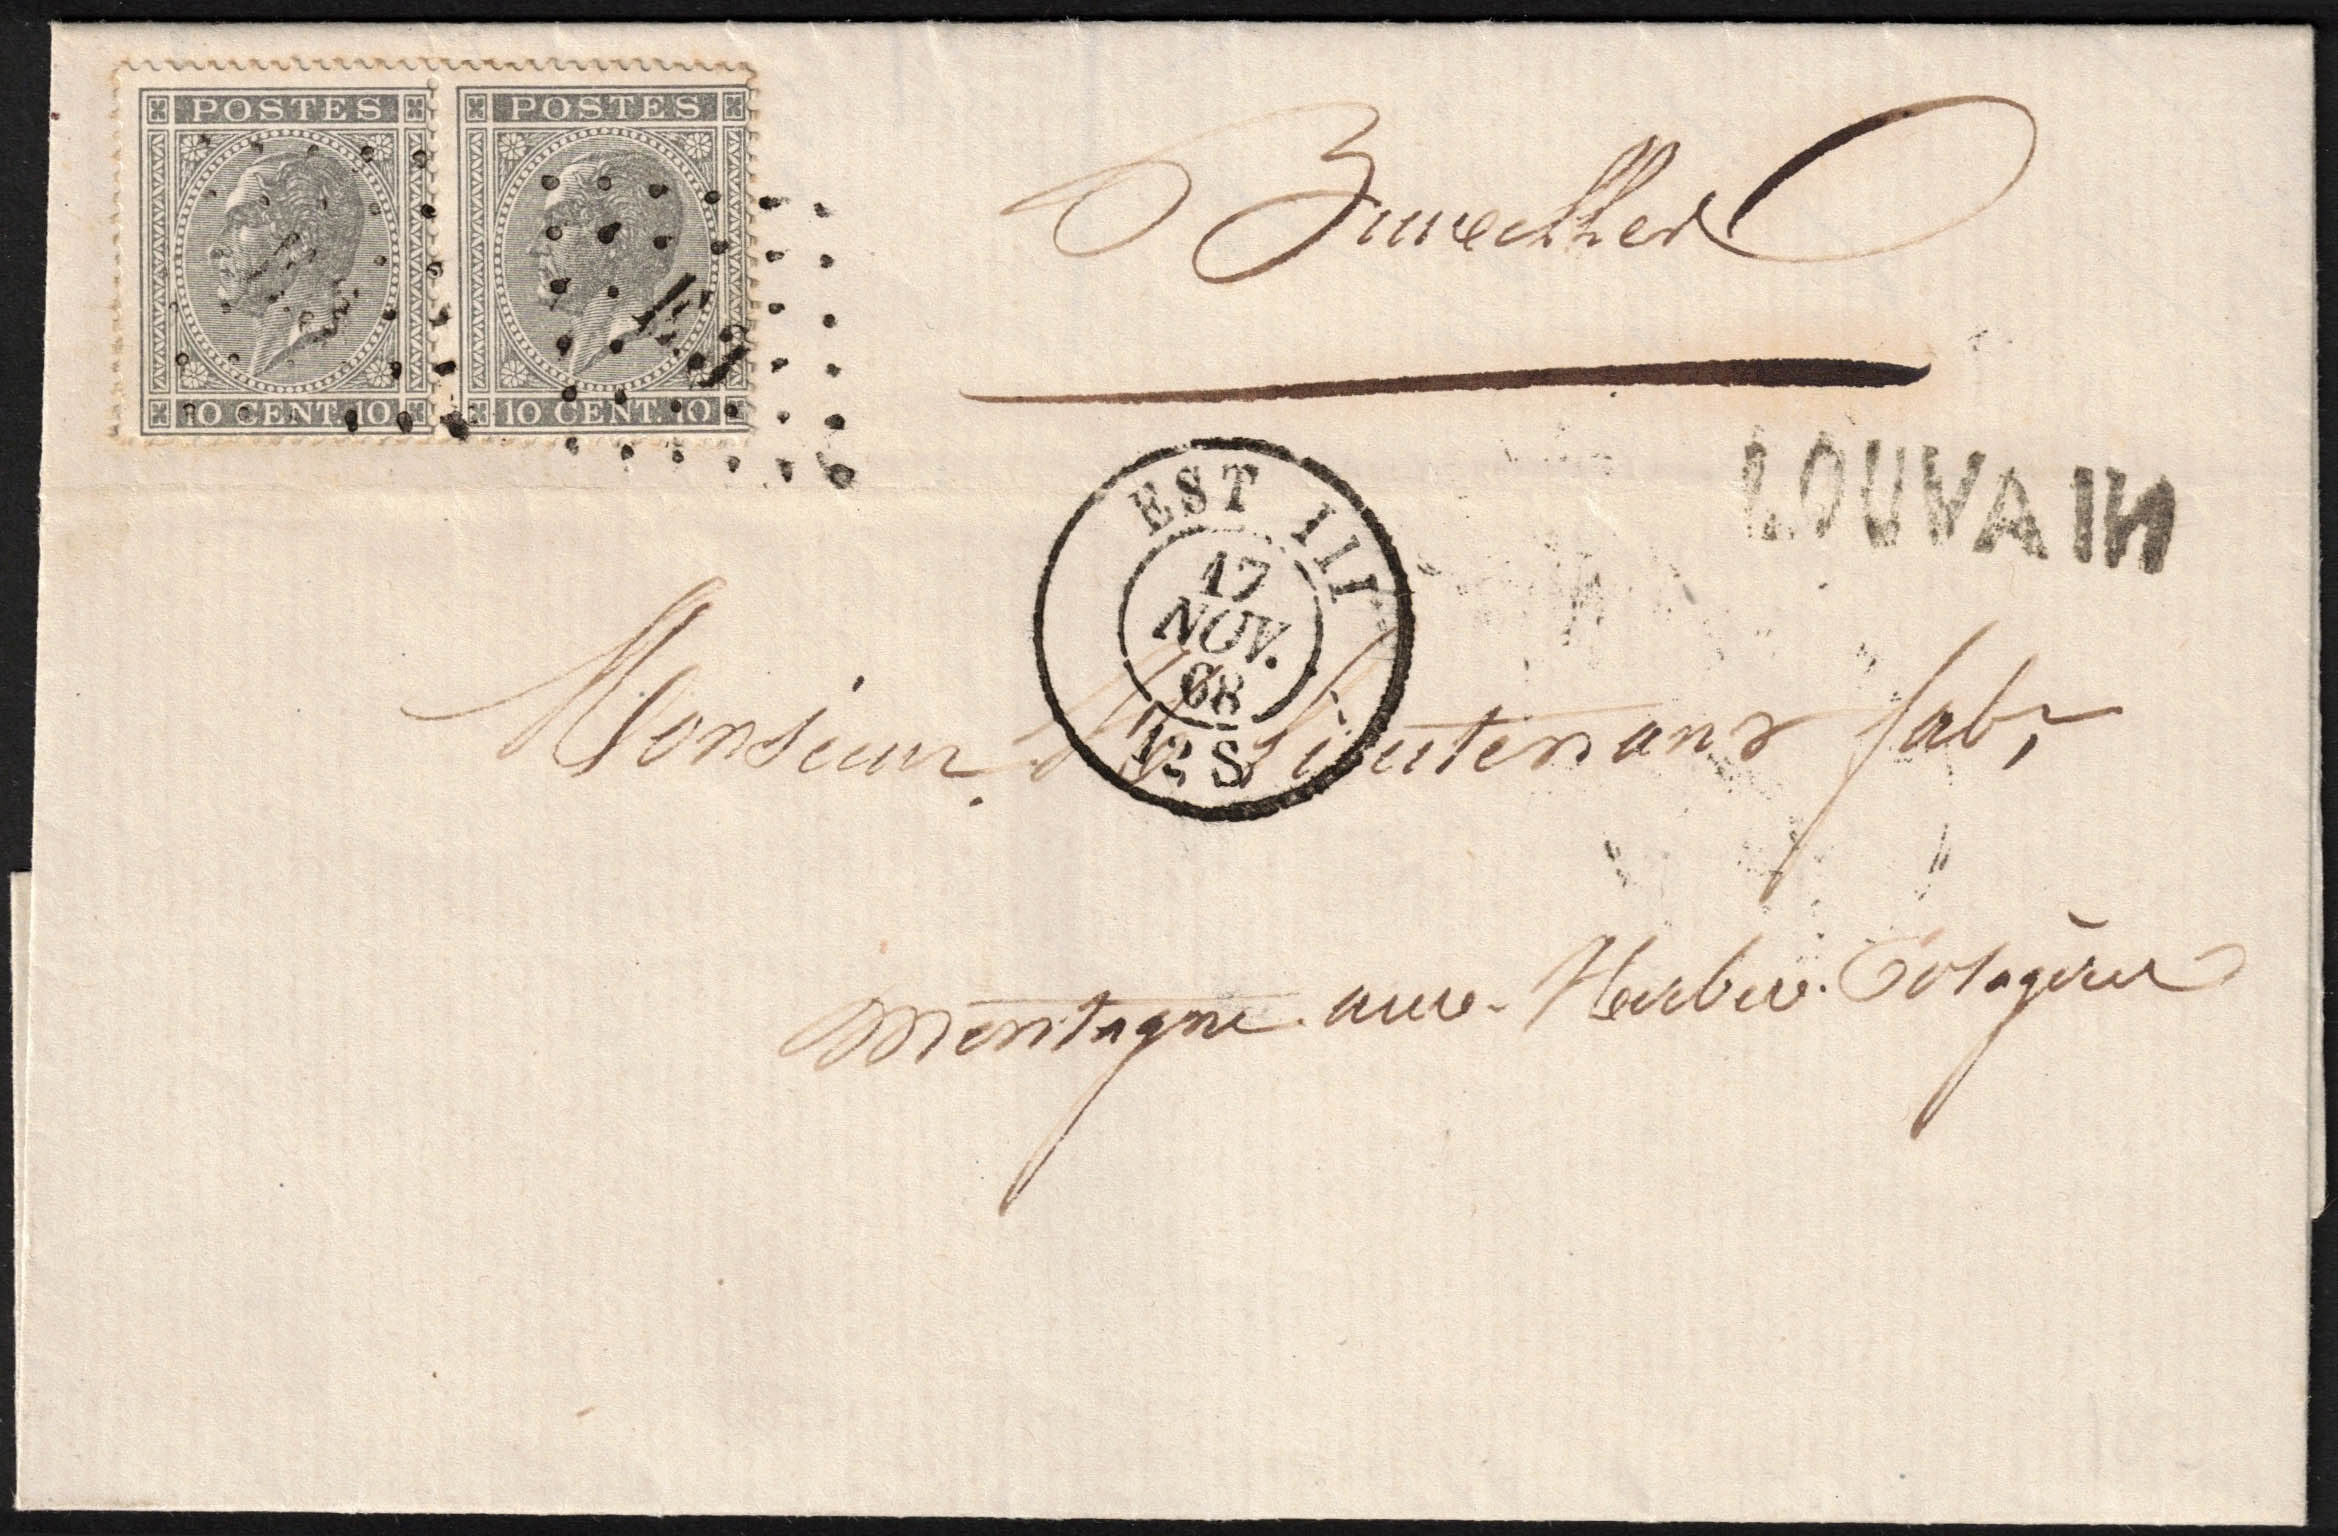 POSTES POSTES
10 CENT. 10 10 CENT. 10
Bruxelles
LOUVAIN
EST III
17
NOV.
68
12 S
Monsieur Lieutenant fab,
Montagne aux Herbes Potagères